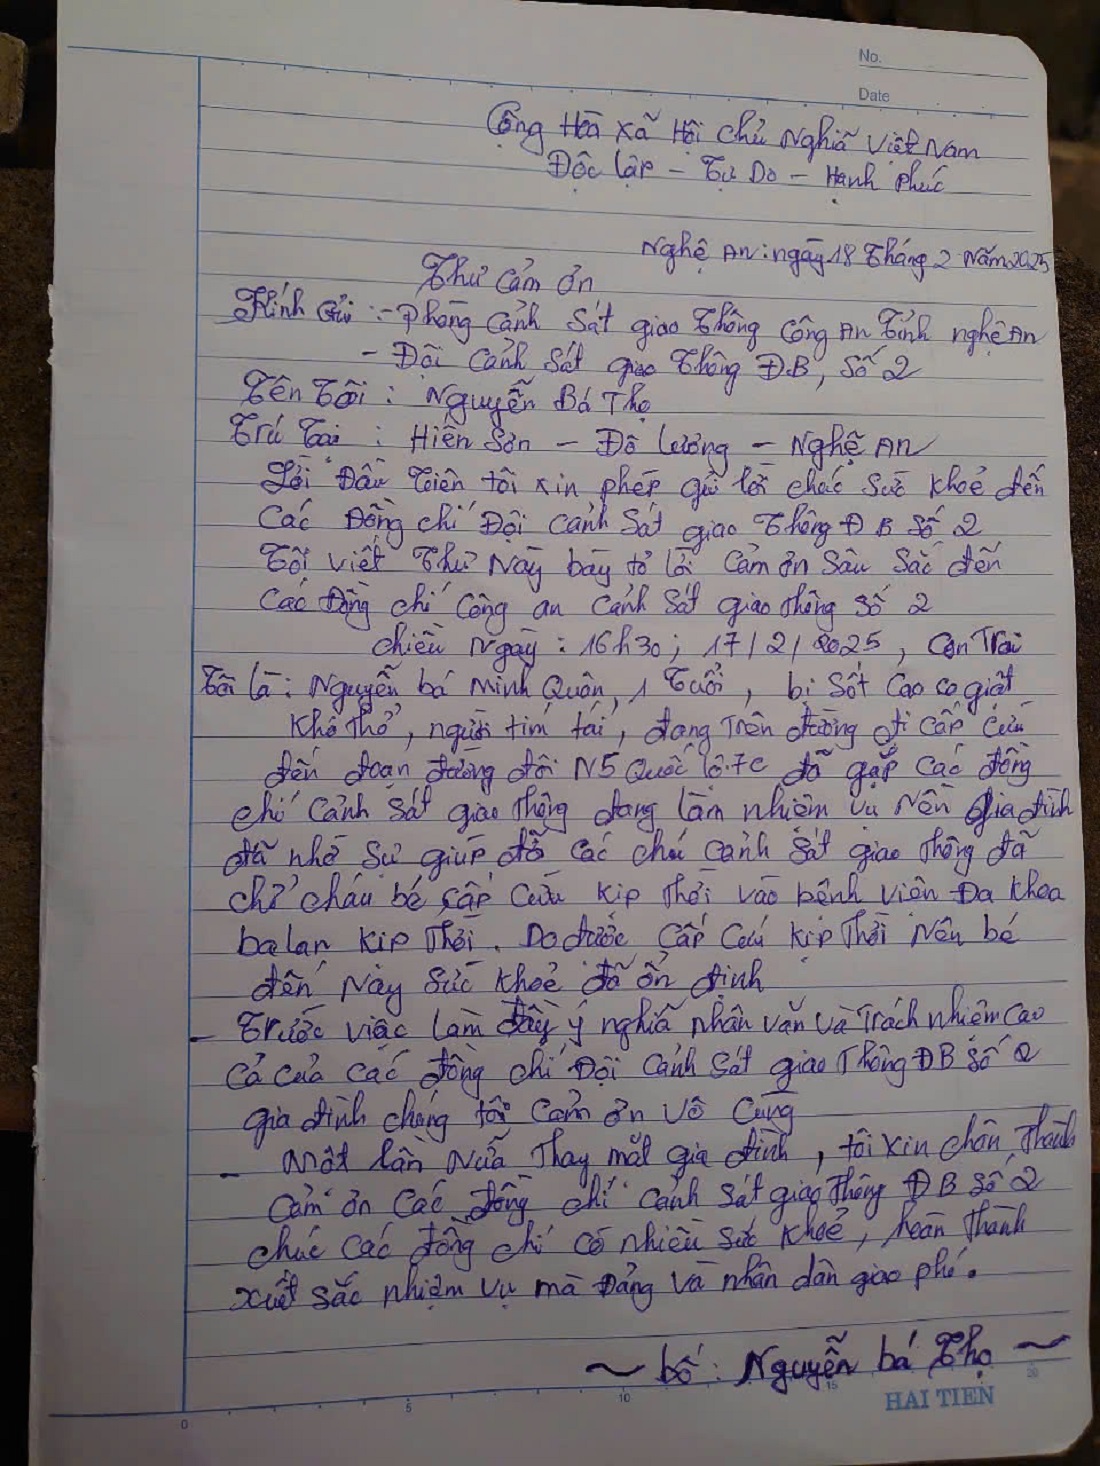 No.
Date
Cộng Hòa xã Hội chủ Nghĩa Việt Nam
Độc lập - Tự Do - Hạnh phúc
Nghệ An: ngày 18 Tháng 2 Năm 2025
Thư cảm ơn
Kính Gửi :- Phòng cảnh sát giao Thông công An Tỉnh nghệ An
- Đội cảnh sát giao Thông ĐB, số 2
Tên Tôi : Nguyễn Bá Thọ
Trú Tại : Hiến Sơn - Đô lương - Nghệ An
Lời Đầu Tiên tôi xin phép gửi lời chúc sức khoẻ đến
các Đồng chí Đội cảnh sát giao Thông Đ B số 2
Tôi viết Thư Này bày tỏ lời cảm ơn sâu sắc đến
các Đồng chí công an cảnh sát giao thông số 2
chiều Ngày : 16h30 ; 17/2/2025, con Trai
Tôi là : Nguyễn bá Minh Quân, 1 Tuổi, bị sốt cao co giật
khó thở, người tím tái, đang Trên đường đi cấp cứu
đến đoạn đường đôi N5 Quốc lộ 7c đã gặp các đồng
chí cảnh sát giao thông đang làm nhiệm vụ Nên gia đình
đã nhờ sự giúp đỡ các chú cảnh sát giao thông đã
chở cháu bé cấp cứu kịp Thời vào bệnh viện Đa khoa
ba lan kịp Thời. Do được cấp cứu kịp Thời Nên bé
đến Này sức khoẻ đã ổn định
- Trước việc làm đầy ý nghĩa nhân văn và Trách nhiệm cao
cả của các đồng chí Đội cảnh sát giao Thông ĐB số 2
gia đình chúng tôi cảm ơn vô cùng
- Một lần Nữa Thay mặt gia đình, tôi xin chân Thành
cảm ơn các đồng chí cảnh sát giao thông Đ B số 2
chúc các đồng chí có nhiều sức khoẻ, hoàn thành
xuất sắc nhiệm vụ mà Đảng và nhân dân giao phó.
~ bố : Nguyễn bá Thọ ~
0 5 10 15 20
HAI TIEN